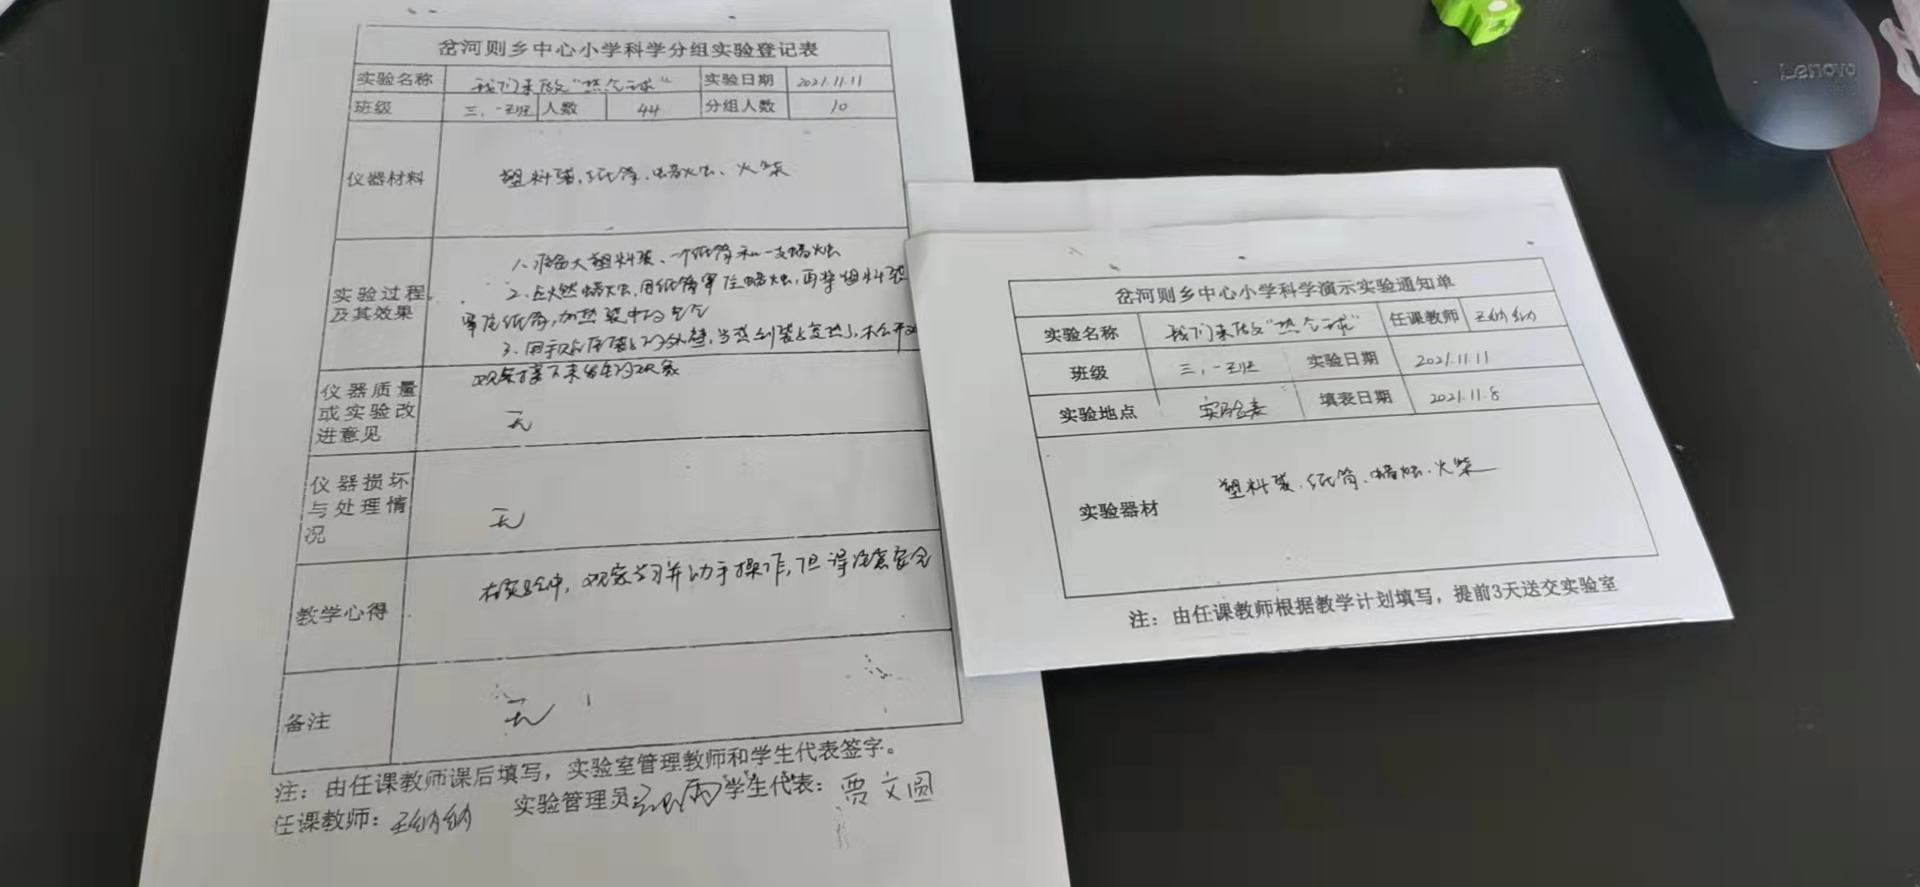 岔河则乡中心小学科学分组实验登记表
实验名称 我们来做“热气球” 实验日期 2021.11.11
班级 三、一班 人数 44 分组人数 10
仪器材料 塑料袋、纸筒、蜡烛、火柴
实验过程及其效果
1、准备大塑料袋、一个纸筒和一支蜡烛
2、点燃蜡烛,用纸筒罩住蜡烛,再将塑料袋
罩住纸筒,加热袋中的空气
3、用手
观察接下来发生的现象
仪器质量或实验改进意见 无
仪器损坏与处理情况 无
教学心得 在实验中,观察学习并动手操作,但得注意安全
备注 无
注:由任课教师课后填写,实验室管理教师和学生代表签字。
任课教师:王纳纳 实验管理员: 学生代表:贾文圆
岔河则乡中心小学科学演示实验通知单
实验名称 我们来做“热气球” 任课教师 王纳纳
班级 三、一班 实验日期 2021.11.11
实验地点 填表日期 2021.11.8
实验器材 塑料袋、纸筒、蜡烛、火柴
注:由任课教师根据教学计划填写,提前3天送交实验室
Lenovo